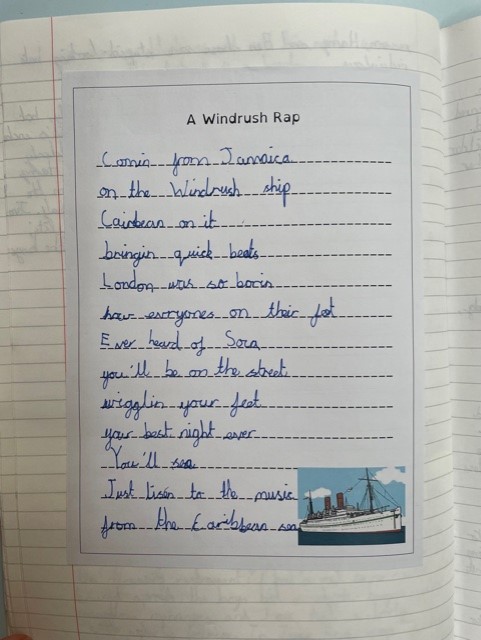 A Windrush Rap
Comin from Jamaica
on the Windrush ship
Cairbean on it
bringin quick beats
London was so borin
how everyones on their feet
Ever heard of Soca
you'll be on the street
wigglin your feet
your best night ever
You'll see
Just lisen to the music
from the Caribbean sea